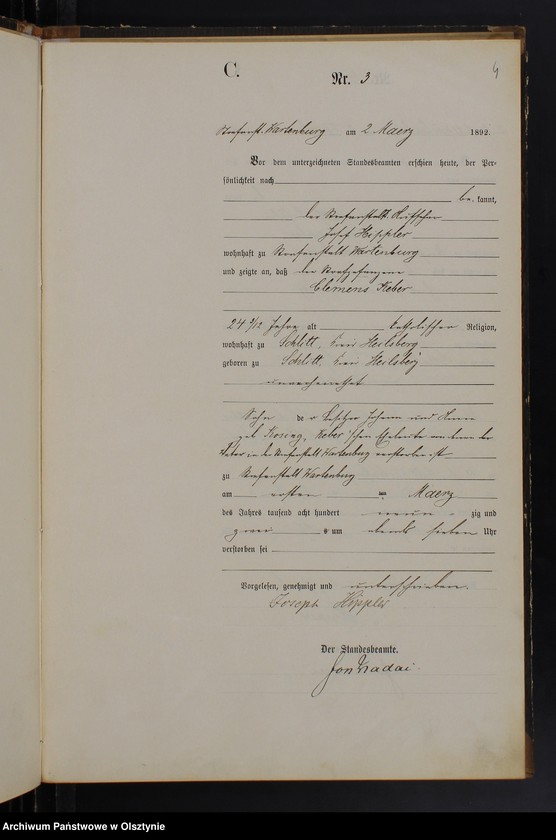 4
C.
Nr. 3
Strafanst. Wartenburg am 2 Maerz 1892.
Vor dem unterzeichneten Standesbeamten erschien heute, der Per-
sönlichkeit nach
be kannt,
der Strafanstalts
Josef Hippler
wohnhaft zu Strafanstalt Wartenburg
und zeigte an, daß der Strafgefangene
Clemens Keber
24 7/12 Jahre alt katholischer Religion,
wohnhaft zu Schlitt, Kreis Heilsberg
geboren zu Schlitt, Kreis Heilsberg
unverheirathet
Sohn der Besitzer Johann und
geb. Keber schen Eheleute von denen der
Vater in der Strafanstalt Wartenburg verstorben ist
zu Strafanstalt Wartenburg
am ersten Maerz
des Jahres tausend acht hundert neun zig und
zwei um abends sieben Uhr
verstorben sei
Vorgelesen, genehmigt und unterschrieben.
Joseph Hippler
Der Standesbeamte.
Archiwum Państwowe w Olsztynie